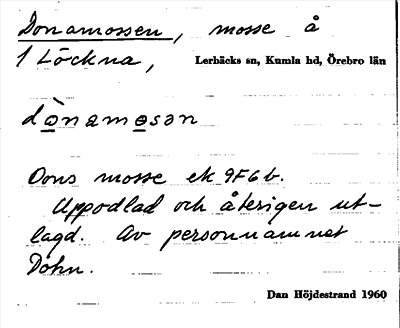 Donamossen, mosse å
1 Löckna, Lerbäcks sn, Kumla hd, Örebro län
dònamosən
Dons mosse ek 9F6b.
Uppodlad och återigen ut-
lagd. Av personnamnet
Dohn.
Dan Höjdestrand 1960